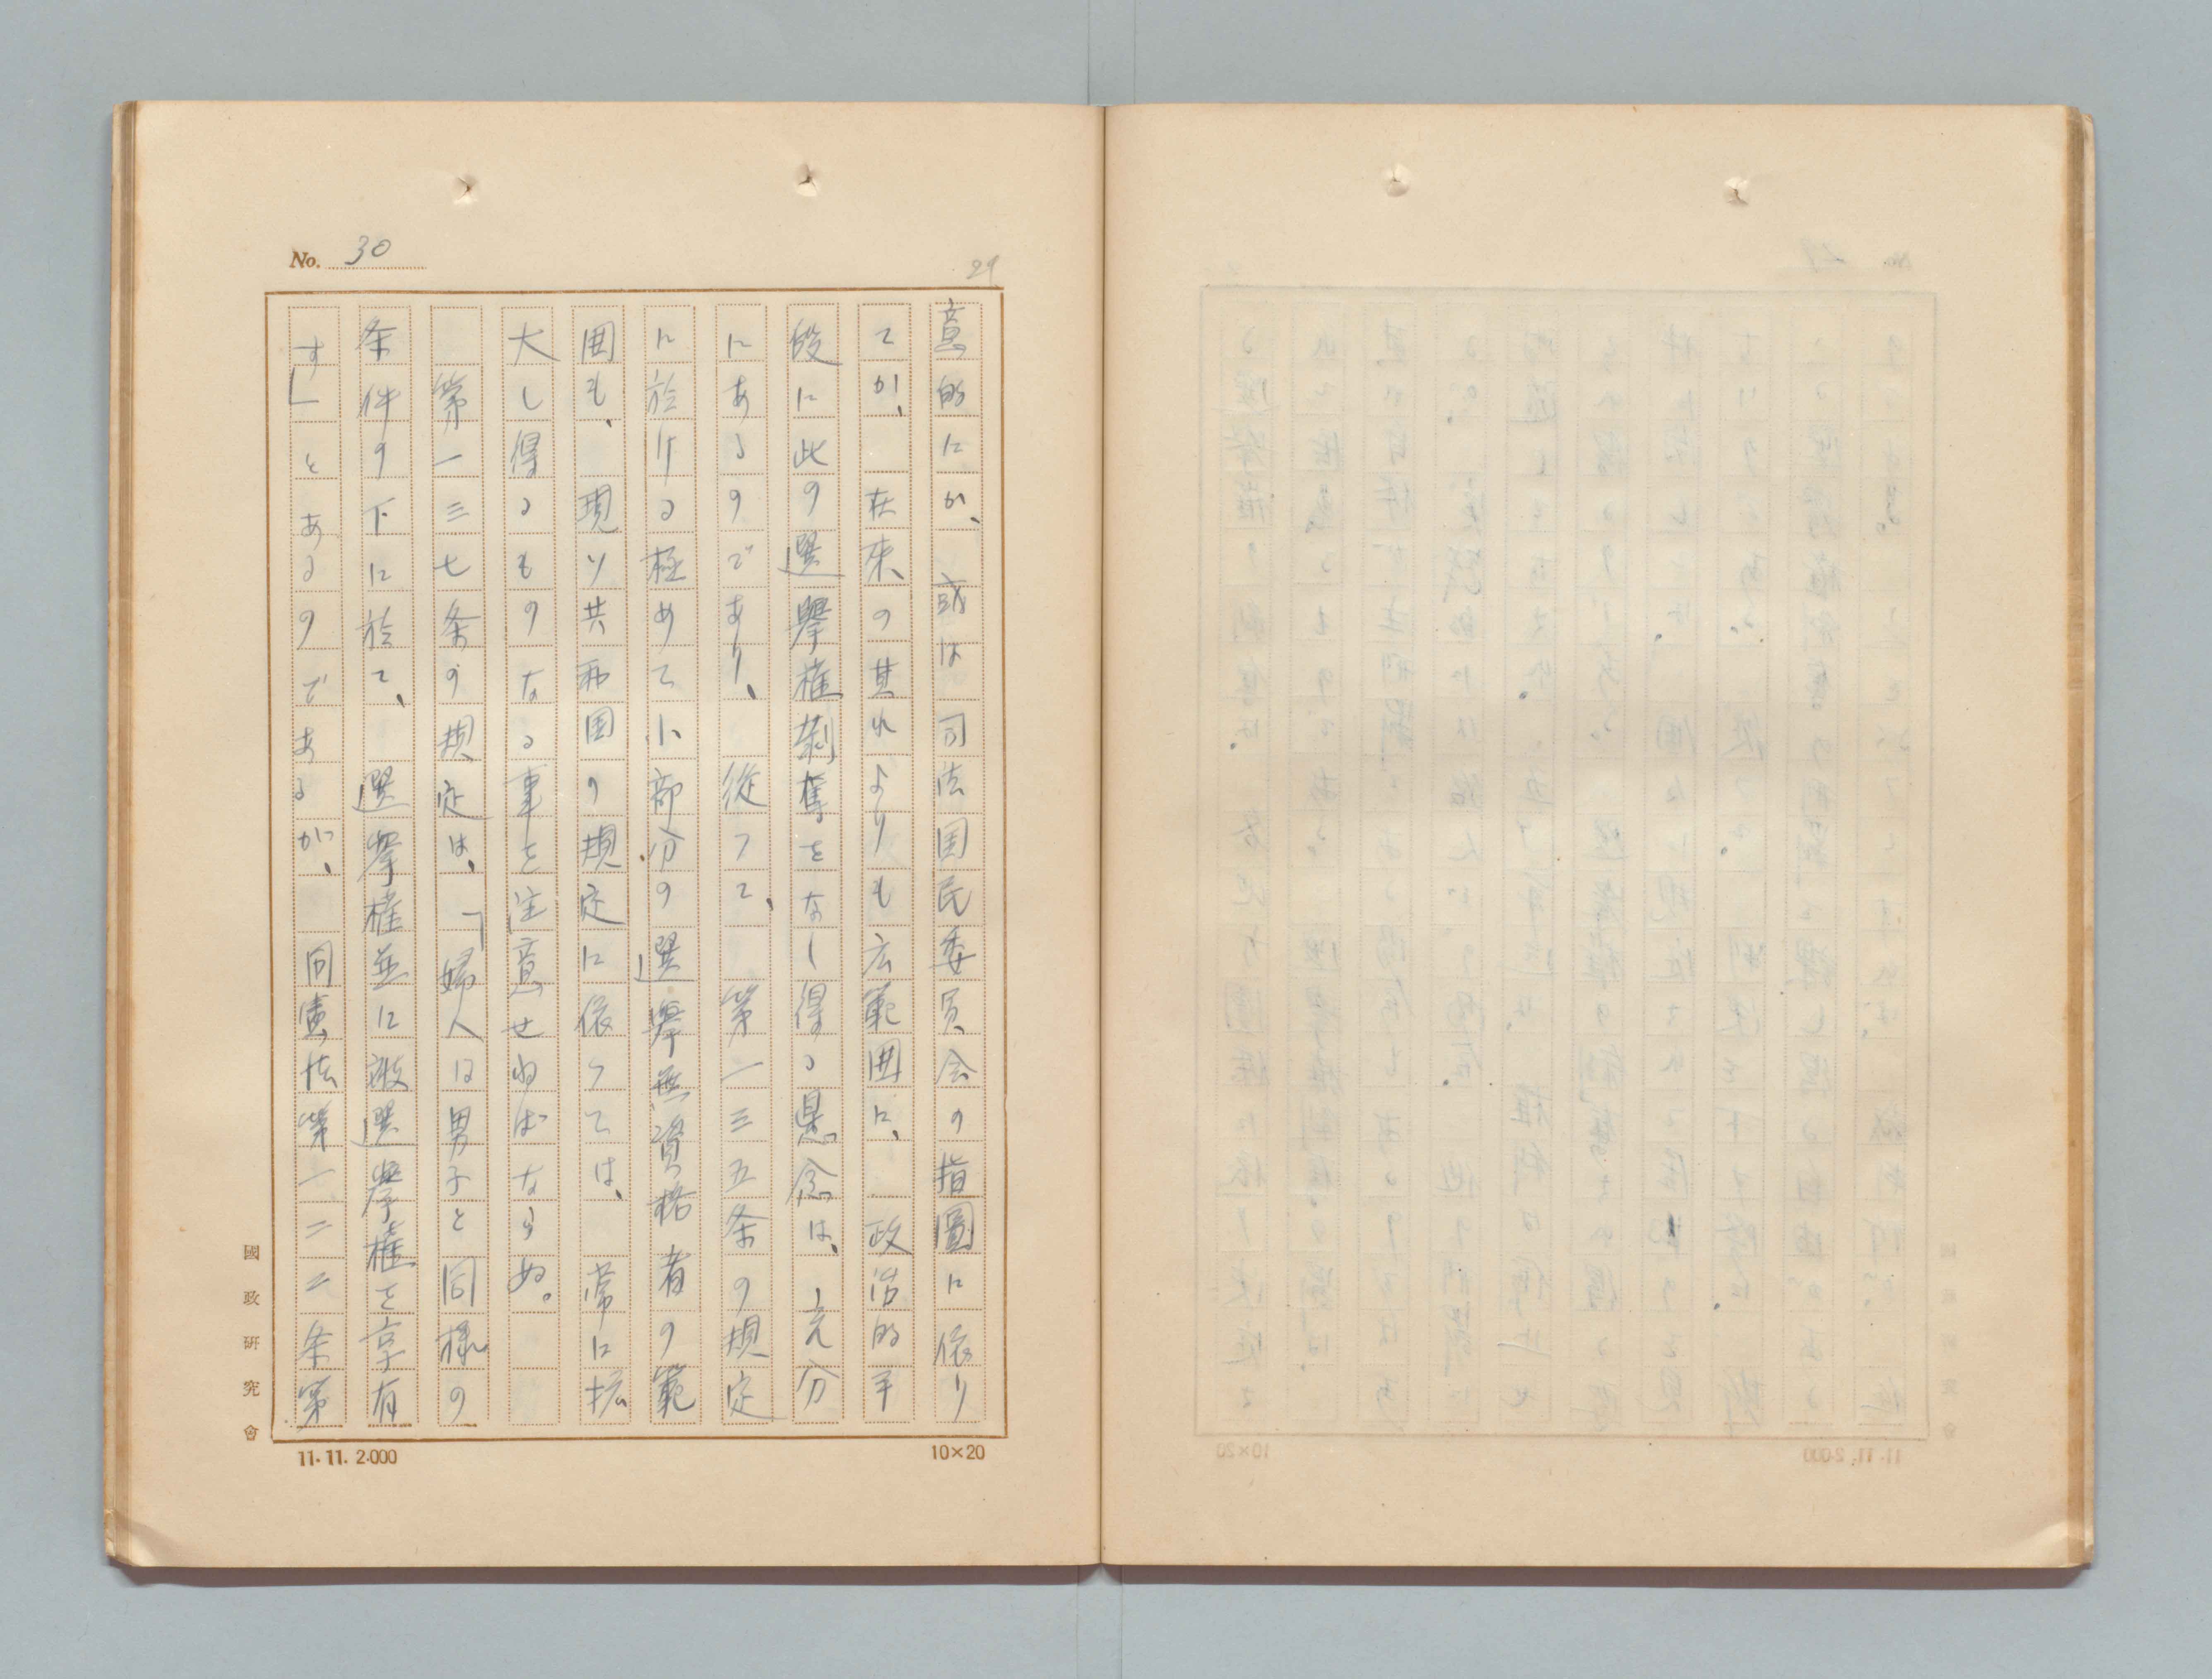 No. 30
29
意的にか、或は司法国民委員会の指圖に依り
てか、在来の其れよりも広範囲に、政治的手
段に此の選擧権剝奪をなし得る懸念は、充分
にあるのであり、従つて、第一三五条の規定
に於ける極めて小部分の選擧無資格者の範
囲も、現ソ共和国の規定に依つては、常に拡
大し得るものなる事を注意せねばならぬ。
第一三七条の規定は、「婦人は男子と同様の
条件の下に於て、選擧権並に被選擧権を享有
す」とあるのであるが、同憲法第一二二条第
國政研究會
11. 11. 2.000
10×20